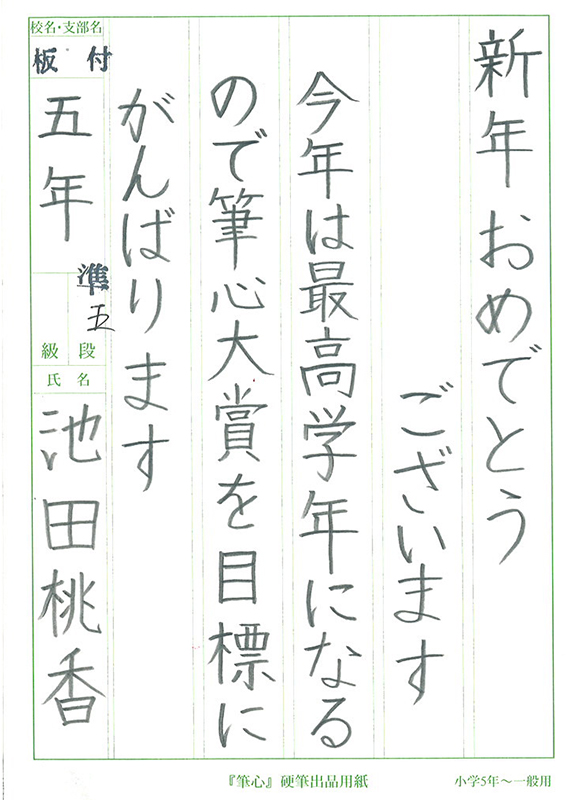 新年おめでとう
ございます
今年は最高学年になる
ので筆心大賞を目標に
がんばります
校名・支部名
板付
五年
準五
級段
氏名
池田桃香
『筆心』硬筆出品用紙
小学5年～一般用